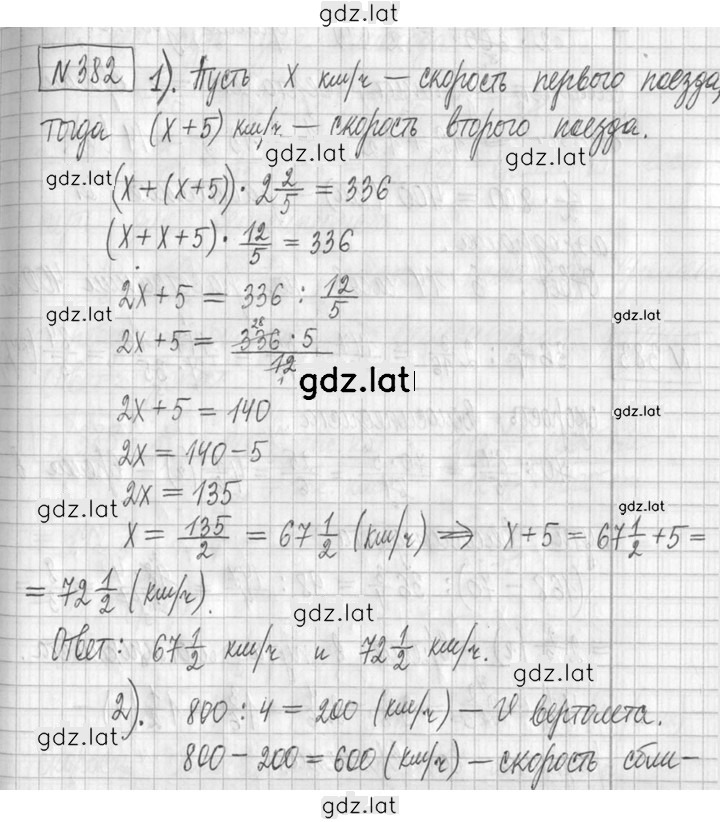 gdz.lat
№382 1). Пусть x км/ч — скорость первого поезда,
тогда (x+5) км/ч — скорость второго поезда.
gdz.lat gdz.lat
gdz.lat (x+(x+5))·2 2/5 = 336
(x+x+5)· 12/5 = 336
2x+5 = 336 : 12/5
gdz.lat gdz.lat
2x+5 = 336 28 ·5 / 12 1
gdz.lat
2x+5 = 140 gdz.lat
2x = 140-5
2x = 135
gdz.lat gdz.lat
x = 135/2 = 67 1/2 (км/ч) ⇒ x+5 = 67 1/2 +5 =
= 72 1/2 (км/ч).
gdz.lat
Ответ: 67 1/2 км/ч и 72 1/2 км/ч.
gdz.lat
2). 800 : 4 = 200 (км/ч) — V вертолета.
gdz.lat
800 - 200 = 600 (км/ч) — скорость сбли-
gdz.lat